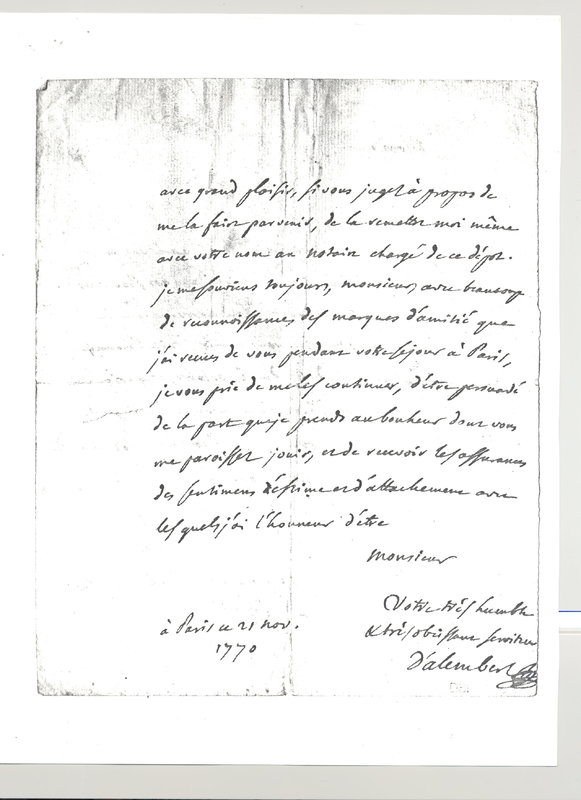 avec grand plaisir, si vous jugez à propos de
me la faire parvenir, de la remettre moi même
avec votre nom au notaire chargé de ce dépot.
je me souviens toujours, monsieur, avec beaucoup
de reconnoissance, des marques d'amitié que
j'ai reçues de vous pendant votre séjour à Paris,
je vous prie de me les continuer, d'être persuadé
de la part que je prends au bonheur dont vous
me paroissez jouir, et de recevoir les assurances
des sentimens d'estime et d'attachement avec
les quels j'ai l'honneur d'être
Monsieur
Votre très humble
& très obéissant serviteur
D'alembert
à Paris ce 21 nov.
1770